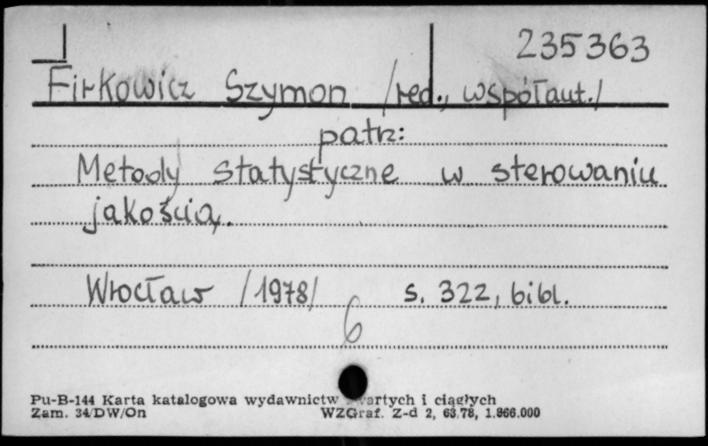 235363
Firkowicz Szymon /red., współaut./
patrz:
Metody statystyczne w sterowaniu
jakością.
Wrocław /1978/ s. 322, bibl.
6
Pu-B-144 Karta katalogowa wydawnictw i ciągłych
Zam. 34/DW/On WZGraf. Z-d 2, 63.78, 1.866.000